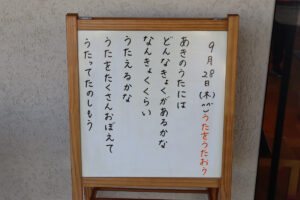 9月28日(木) うたをうたおう
あきのうたには
どんなきょくがあるかな
なんきょくくらい
うたえるかな
うたをたくさんおぼえて
うたってたのしもう